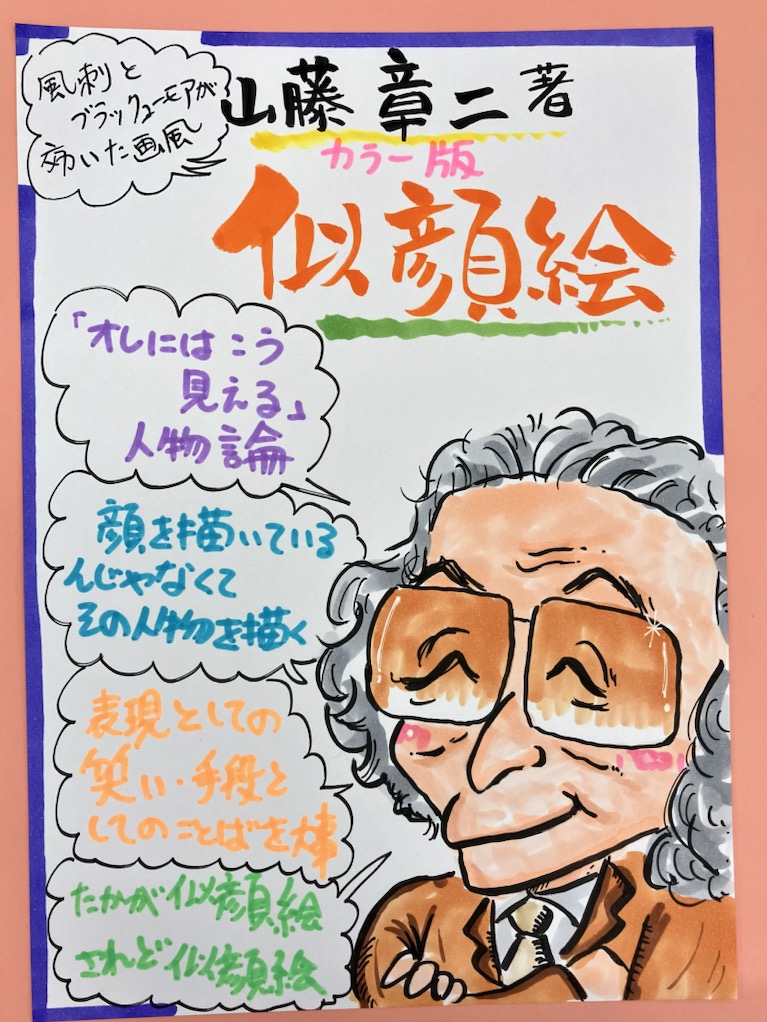 風刺と
ブラックユーモアが
効いた画風
山藤章二著
カラー版
似顔絵
「オレにはこう
見える」
人物論
顔を描いている
んじゃなくて
その人物を描く
表現としての
笑い・手段と
してのことばを大事
たかが似顔絵
されど似顔絵